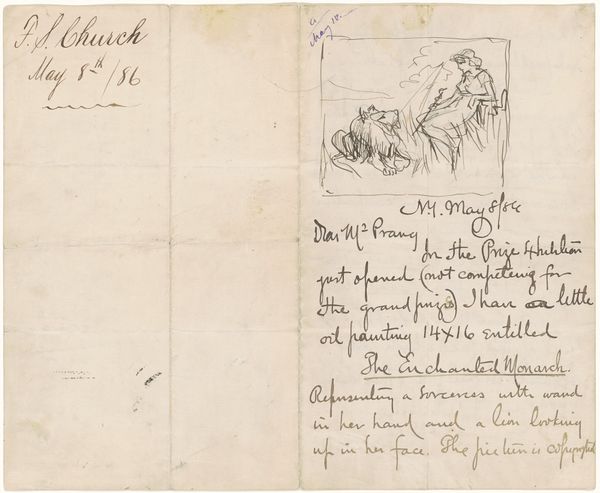 F. S. Church
May 8th/86
May 10.
N.Y. May 8/86
Dear Mr Prang
In the Prize Exhibition
just opened (not competing for
the grand prize) I have a little
oil painting 14x16 entitled
The Enchanted Monarch.
Representing a Sorceress with wand
in her hand and a lion looking
up in her face. The picture is copyrighted